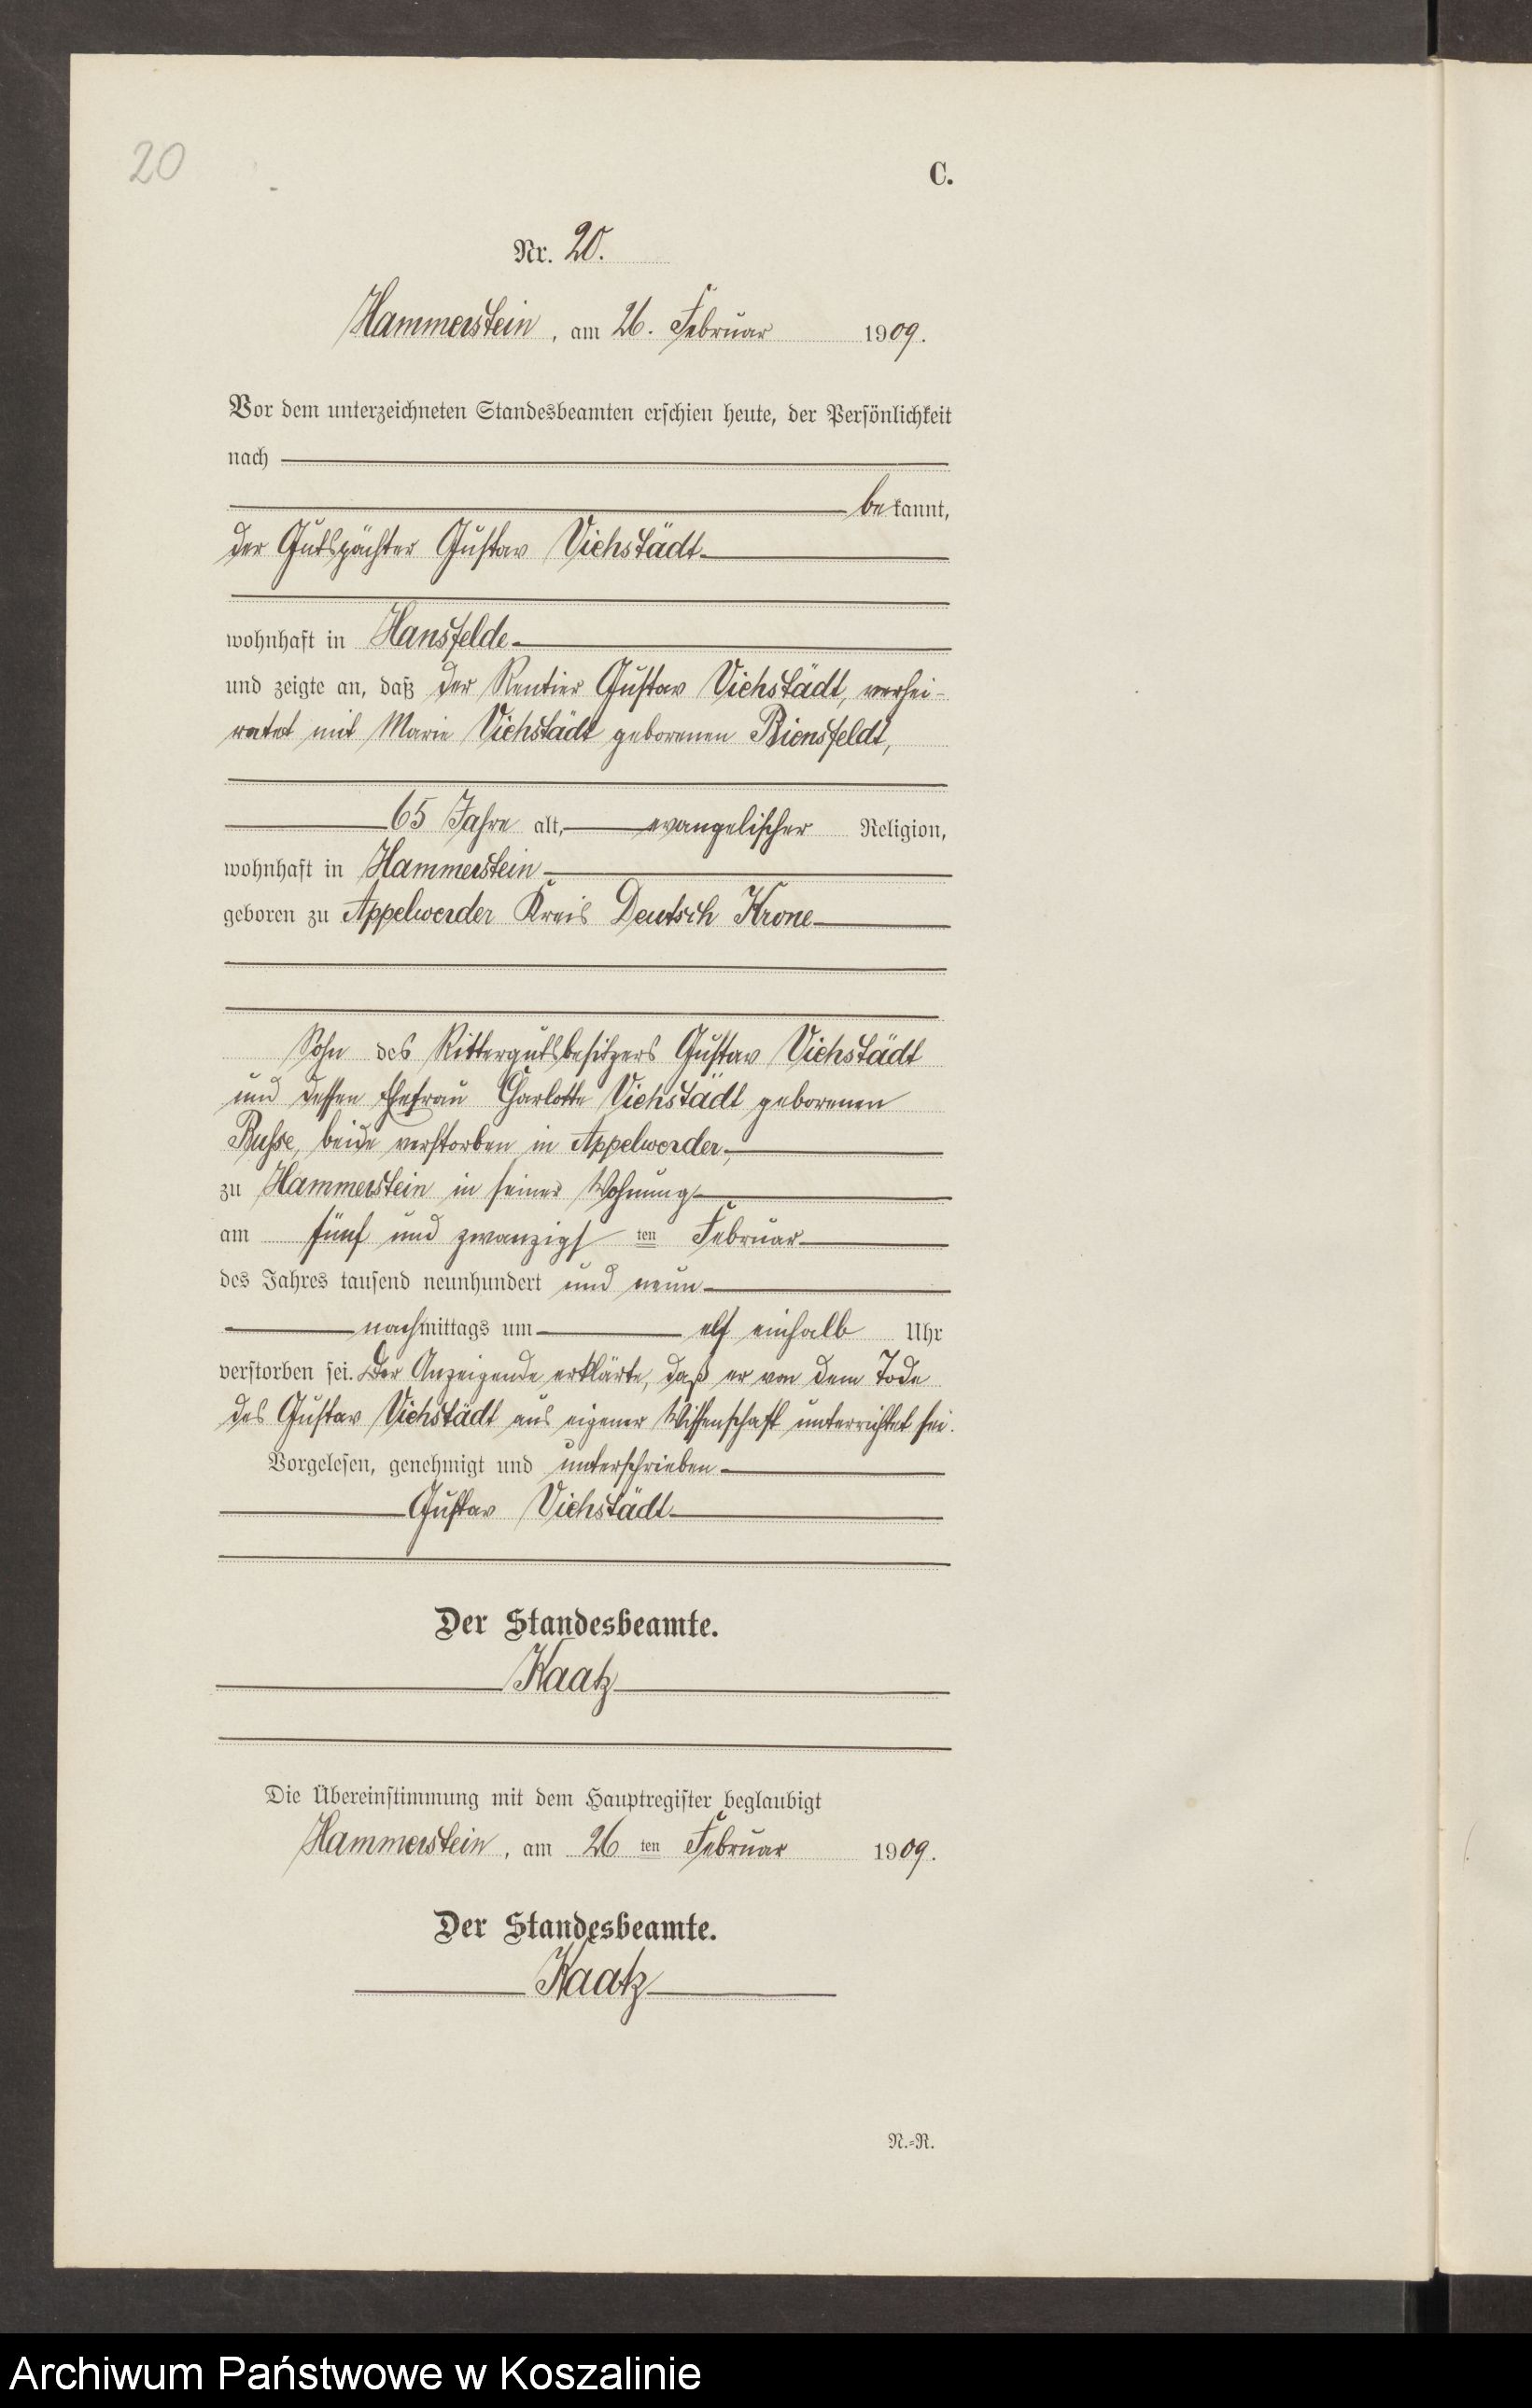 20
C.
Nr. 20.
Hammerstein, am 26. Februar 1909.
Vor dem unterzeichneten Standesbeamten erschien heute, der Persönlichkeit
nach
bekannt,
der Gutspächter Gustav Viehstädt
wohnhaft in Hansfelde
und zeigte an, daß der Rentier Gustav Viehstädt, verhei-
ratet mit Marie Viehstädt geborenen Biensfeldt,
65 Jahre alt, evangelischer Religion,
wohnhaft in Hammerstein
geboren zu Appelwerder Kreis Deutsch Krone
Sohn des Rittergutsbesitzers Gustav Viehstädt
und dessen Ehefrau Charlotte Viehstädt geborenen
Busse, beide verstorben in Appelwerder,
zu Hammerstein in seiner Wohnung
am fünf und zwanzigsten Februar
des Jahres tausend neunhundert und neun
nachmittags um elf einhalb Uhr
verstorben sei. Der Anzeigende erklärte, daß er von dem Tode
des Gustav Viehstädt aus eigener Wissenschaft unterrichtet sei.
Vorgelesen, genehmigt und unterschrieben
Gustav Viehstädt
Der Standesbeamte.
Kaatz
Die Übereinstimmung mit dem Hauptregister beglaubigt
Hammerstein, am 26ten Februar 1909.
Der Standesbeamte.
Kaatz
N.=R.
Archiwum Państwowe w Koszalinie